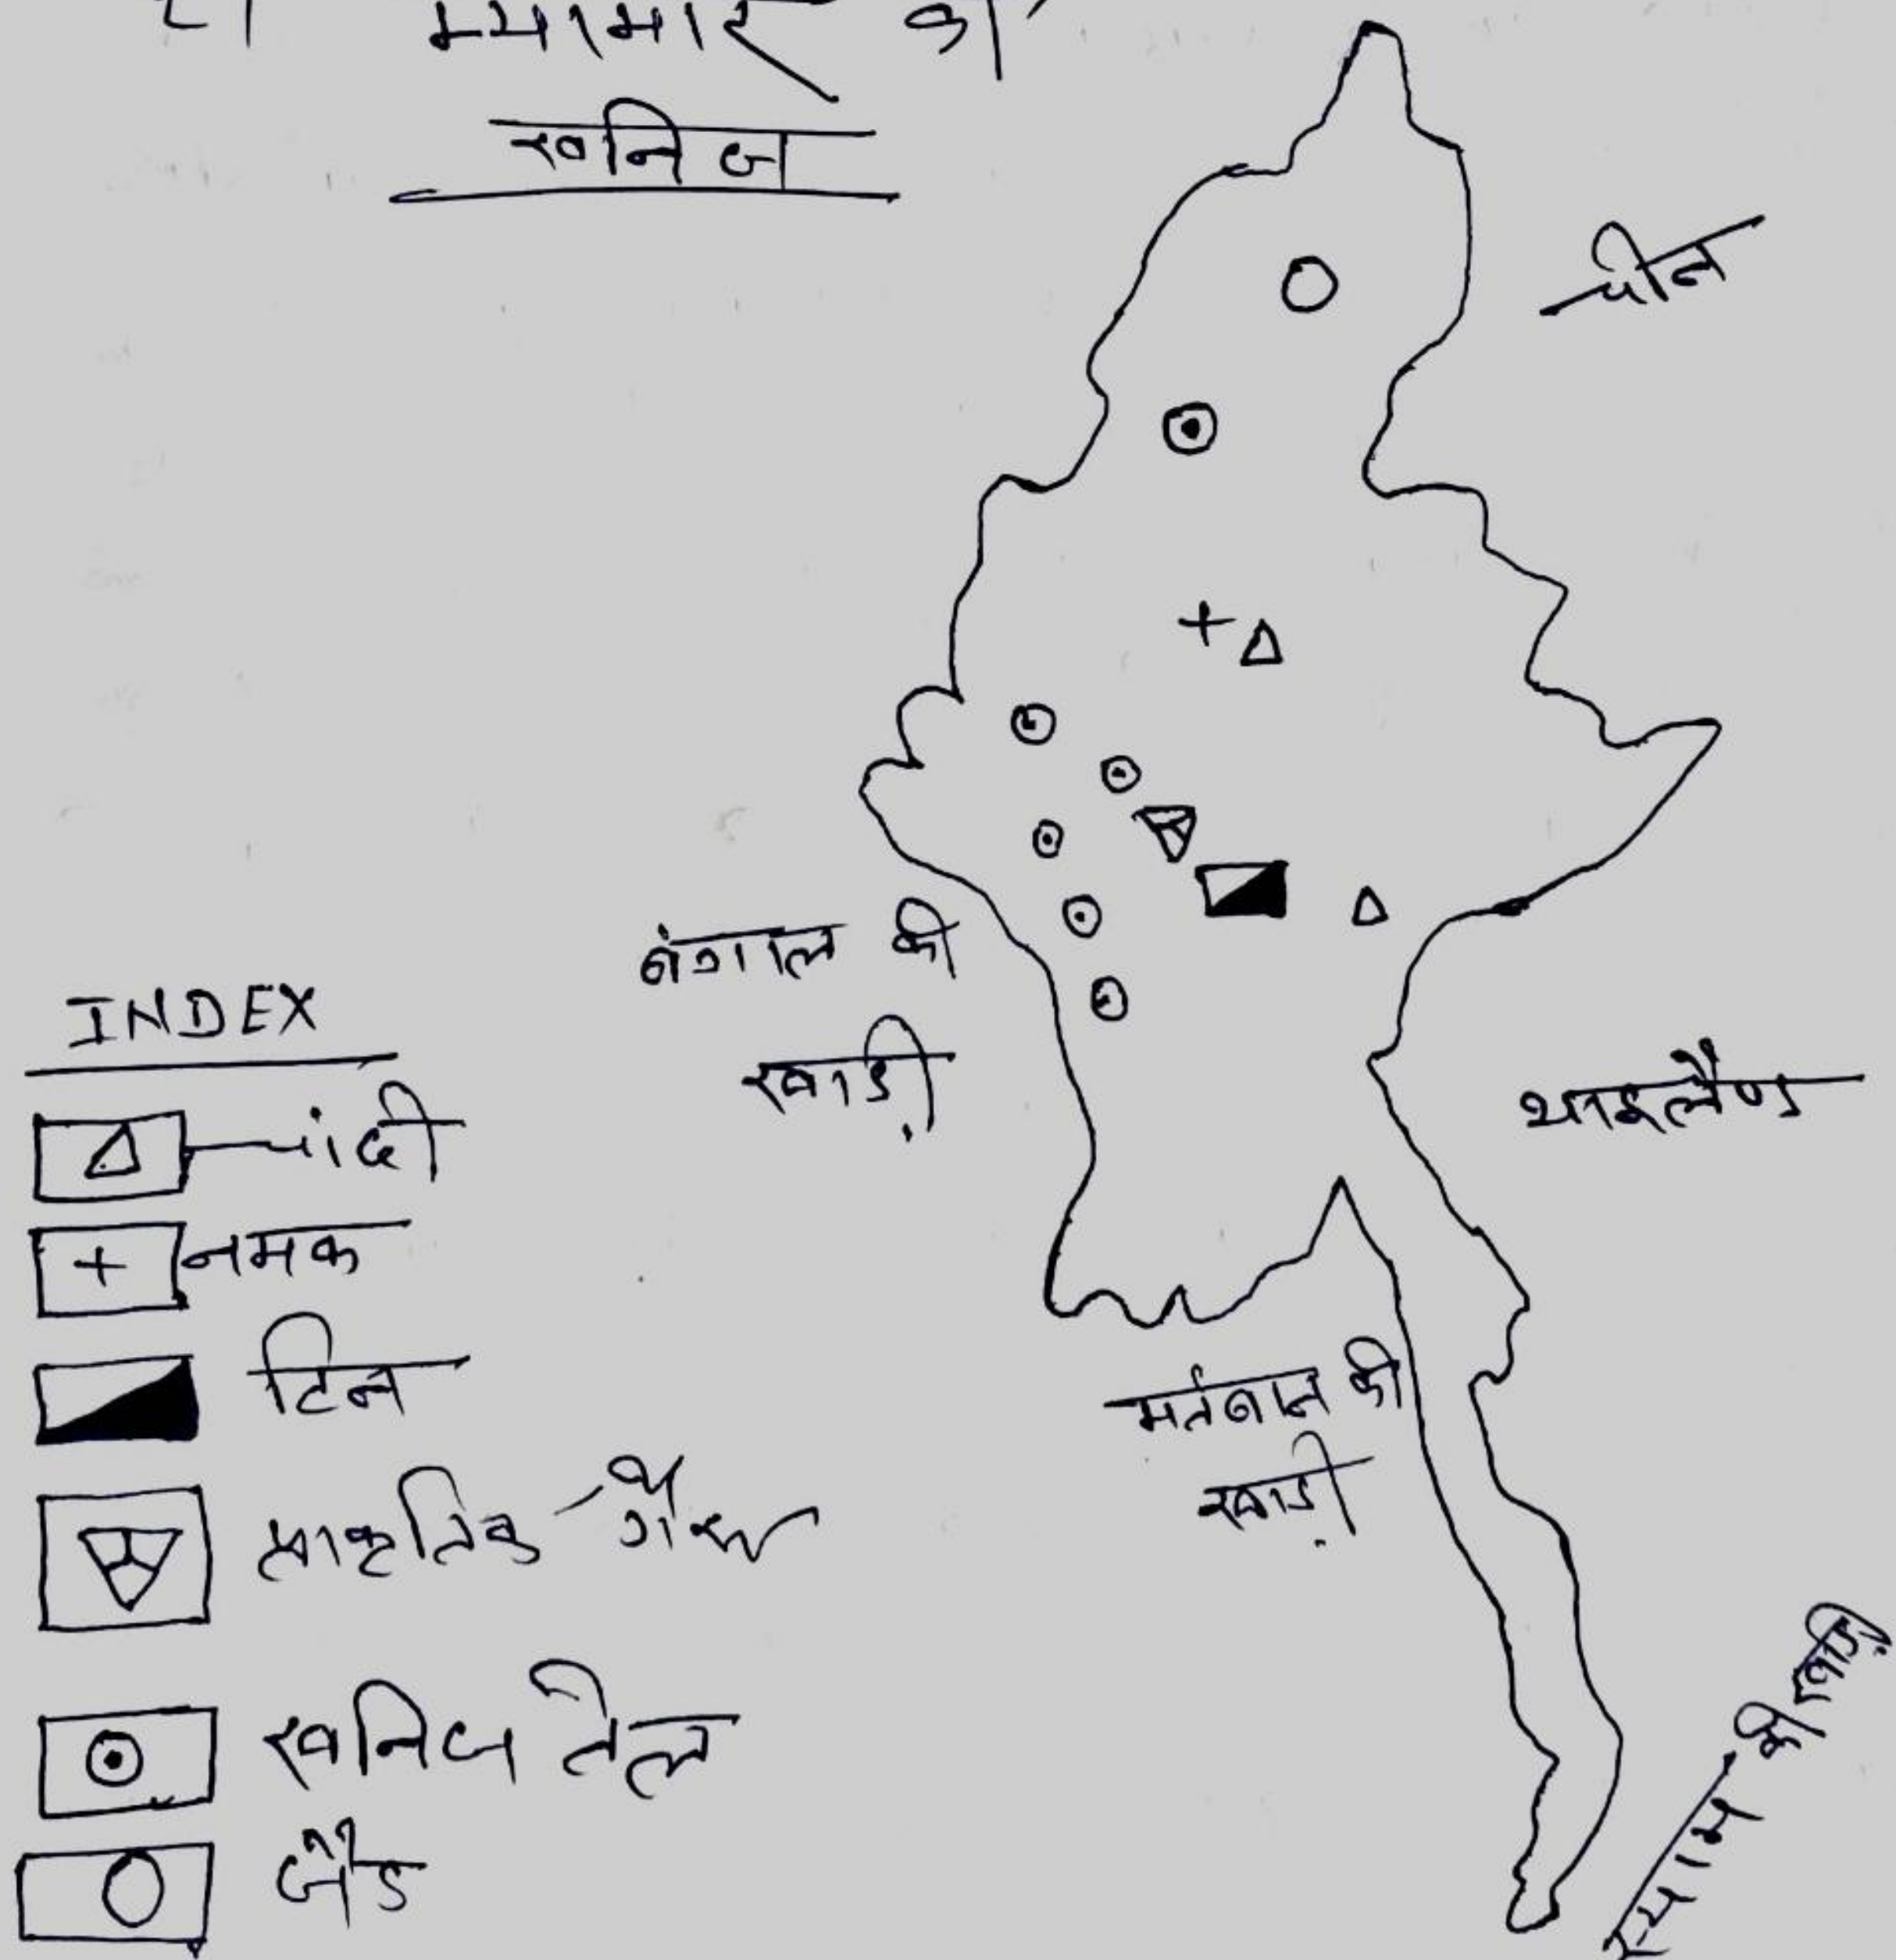 म्यांमार की
खनिज
चीन
बंगाल की
खाड़ी
थाइलैण्ड
मर्तबान की
खाड़ी
स्याम की खाड़ी
INDEX
चांदी
+ नमक
टिन
प्राकृतिक गैस
खनिज तेल
जैड